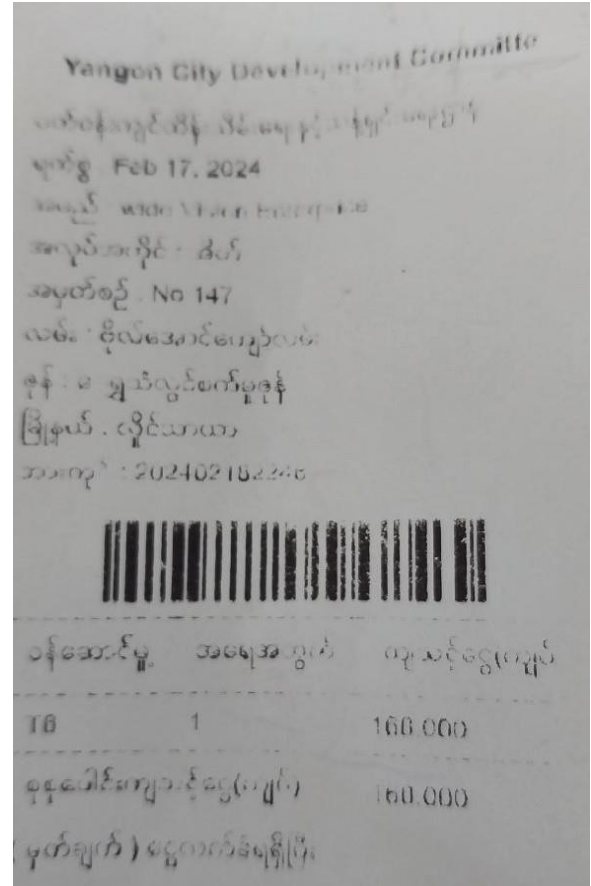 Yangon City Development Committe
ပတ်ဝန်းကျင်ထိန်းသိမ်းရေးနှင့်သန့်ရှင်းရေးဌာန
ရက်စွဲ : Feb 17, 2024
အမည် : Wide Vision Enterprise
အလုပ်အကိုင် :
အမှတ်စဉ် : No 147
လမ်း : ဗိုလ်အောင်ကျော်လမ်း
ဇုန် : ရွှေသံလွင်စက်မှုဇုန်
မြို့နယ် : လှိုင်သာယာ
ဘားကုဒ် :
ဝန်ဆောင်မှု အရေအတွက် ကျသင့်ငွေ(ကျပ်)
T6 1 160,000
စုစုပေါင်းကျသင့်ငွေ(ကျပ်) 160,000
( မှတ်ချက် ) ငွေလက်ခံရရှိပြီး